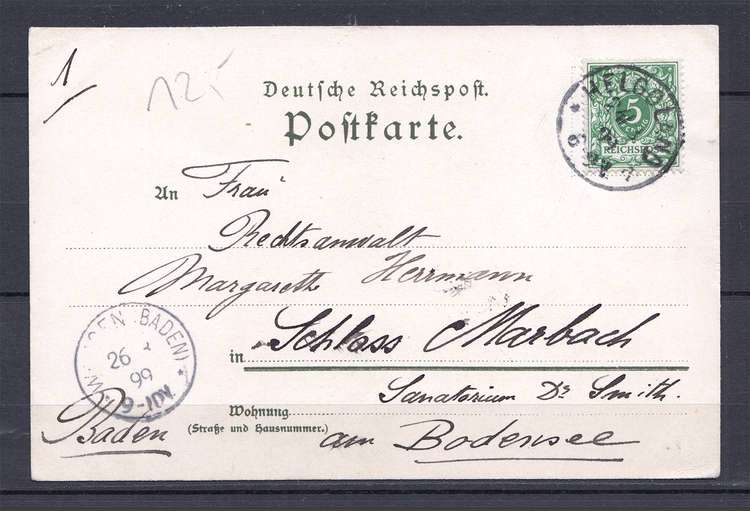 1
12.-
Deutsche Reichspost.
Postkarte.
HELGOLAND
5
REICHSPOST
An Frau
Rechtsanwalt
Margareth Herrmann
in Schloss Marbach
Sanatorium Dr Smith.
Wohnung
(Straße und Hausnummer.)
am Bodensee
Baden
GEN (BADEN)
26
99
9-10V.